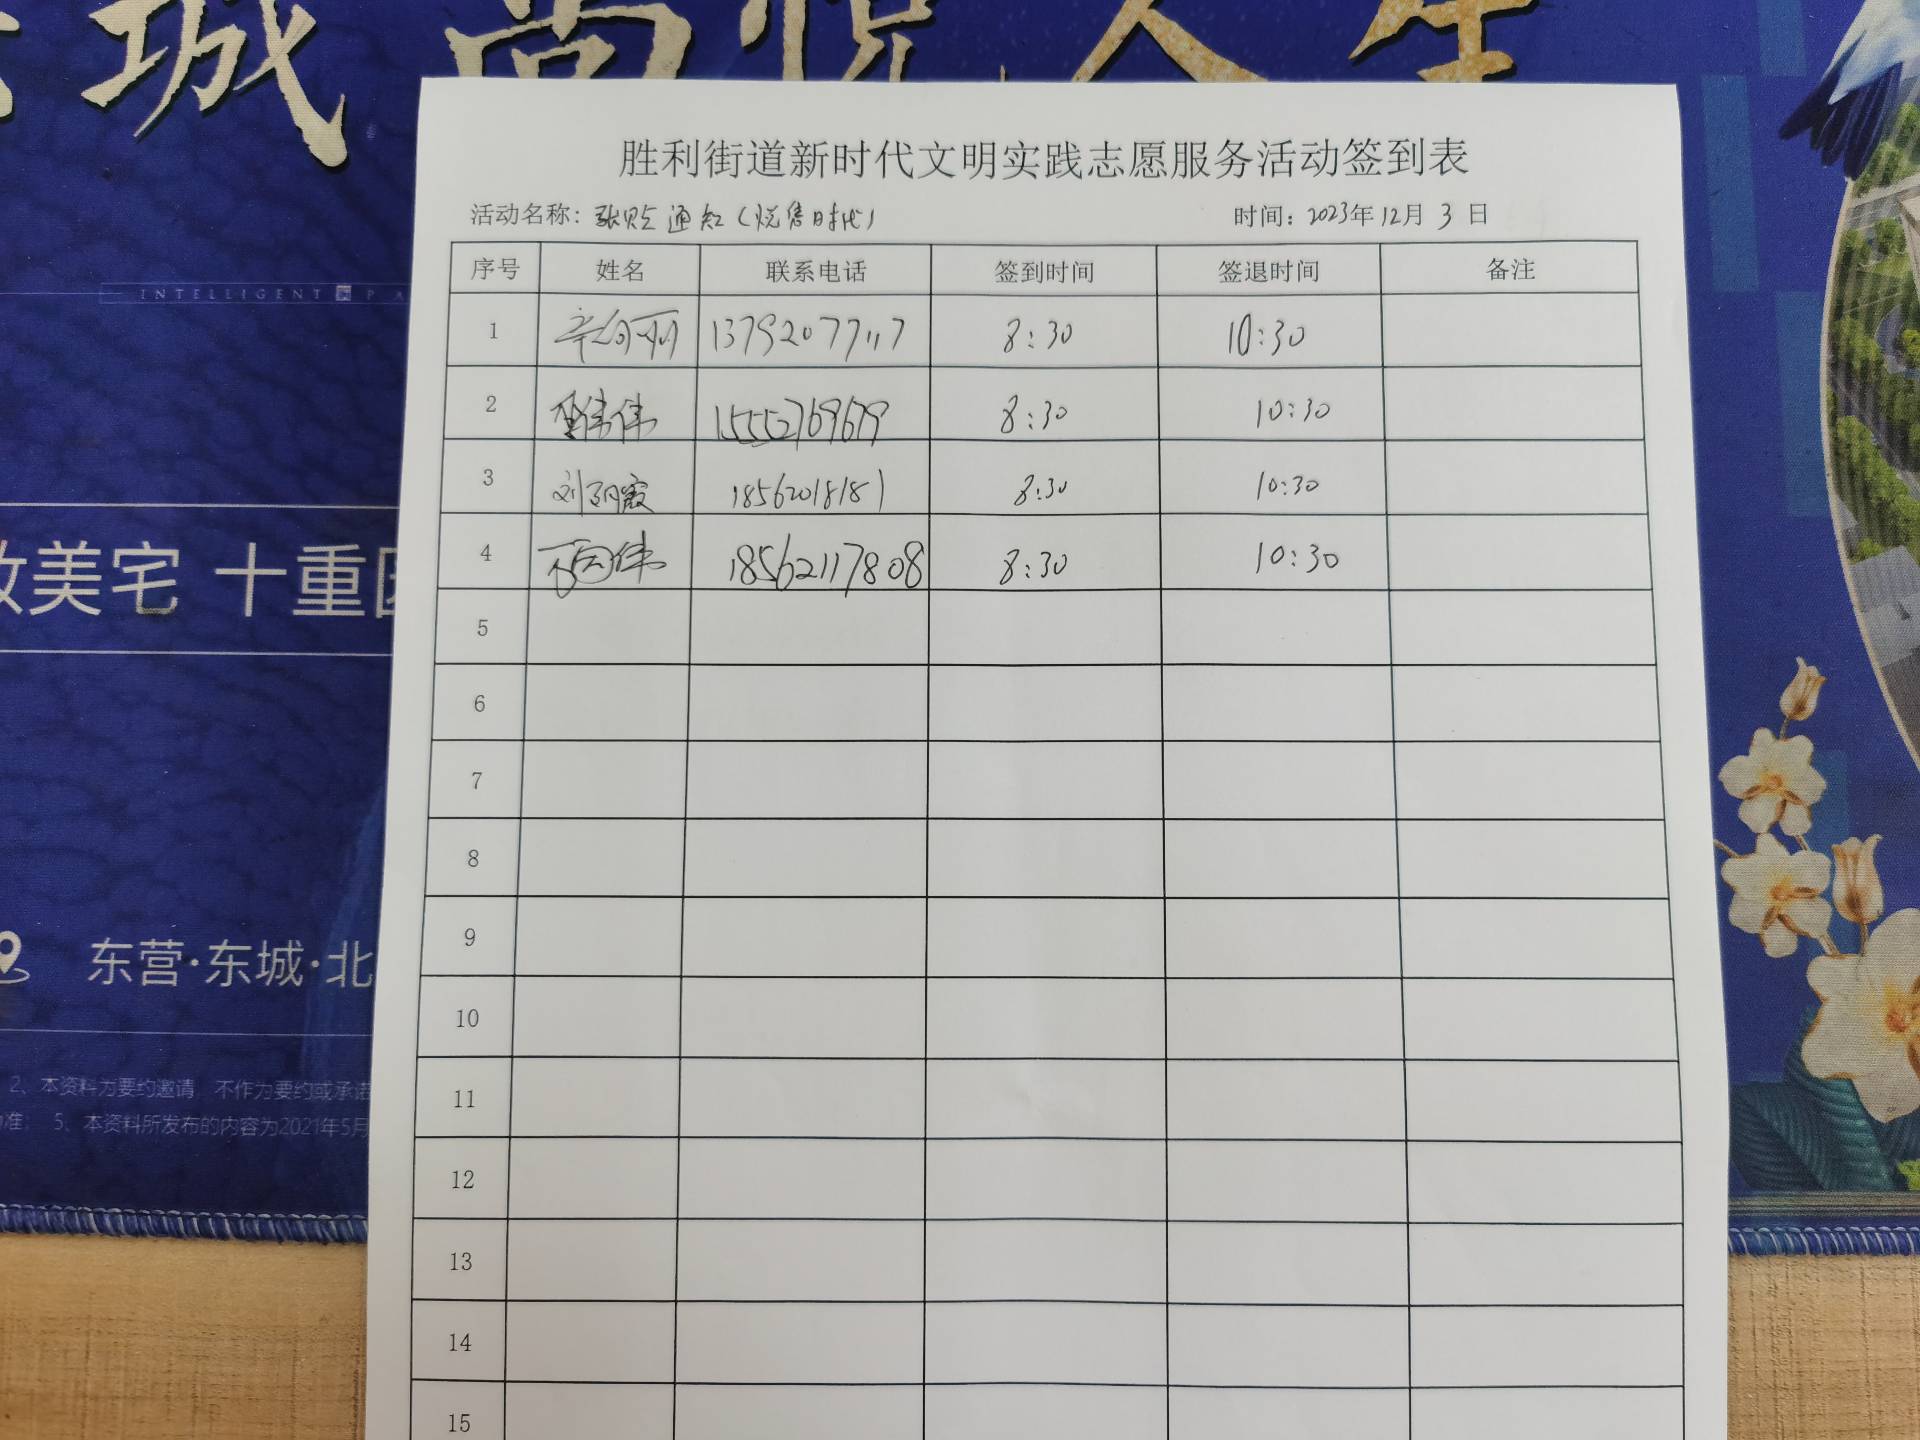 城 尚悦人生
胜利街道新时代文明实践志愿服务活动签到表
活动名称：张贴通知（悦隽时代） 时间：2023年12月3日
INTELLIGENT PA
序号 姓名 联系电话 签到时间 签退时间 备注
1 13792077117 8:30 10:30
2 伟伟 15552769679 8:30 10:30
3 刘丽霞 18562018181 8:30 10:30
4 伟 18562117808 8:30 10:30
美宅 十重
5
6
7
8
9
东营·东城·北
10
2、本资料为要约邀请，不作为要约或承诺
11
准； 5、本资料所发布的内容为2021年5月
12
13
14
15